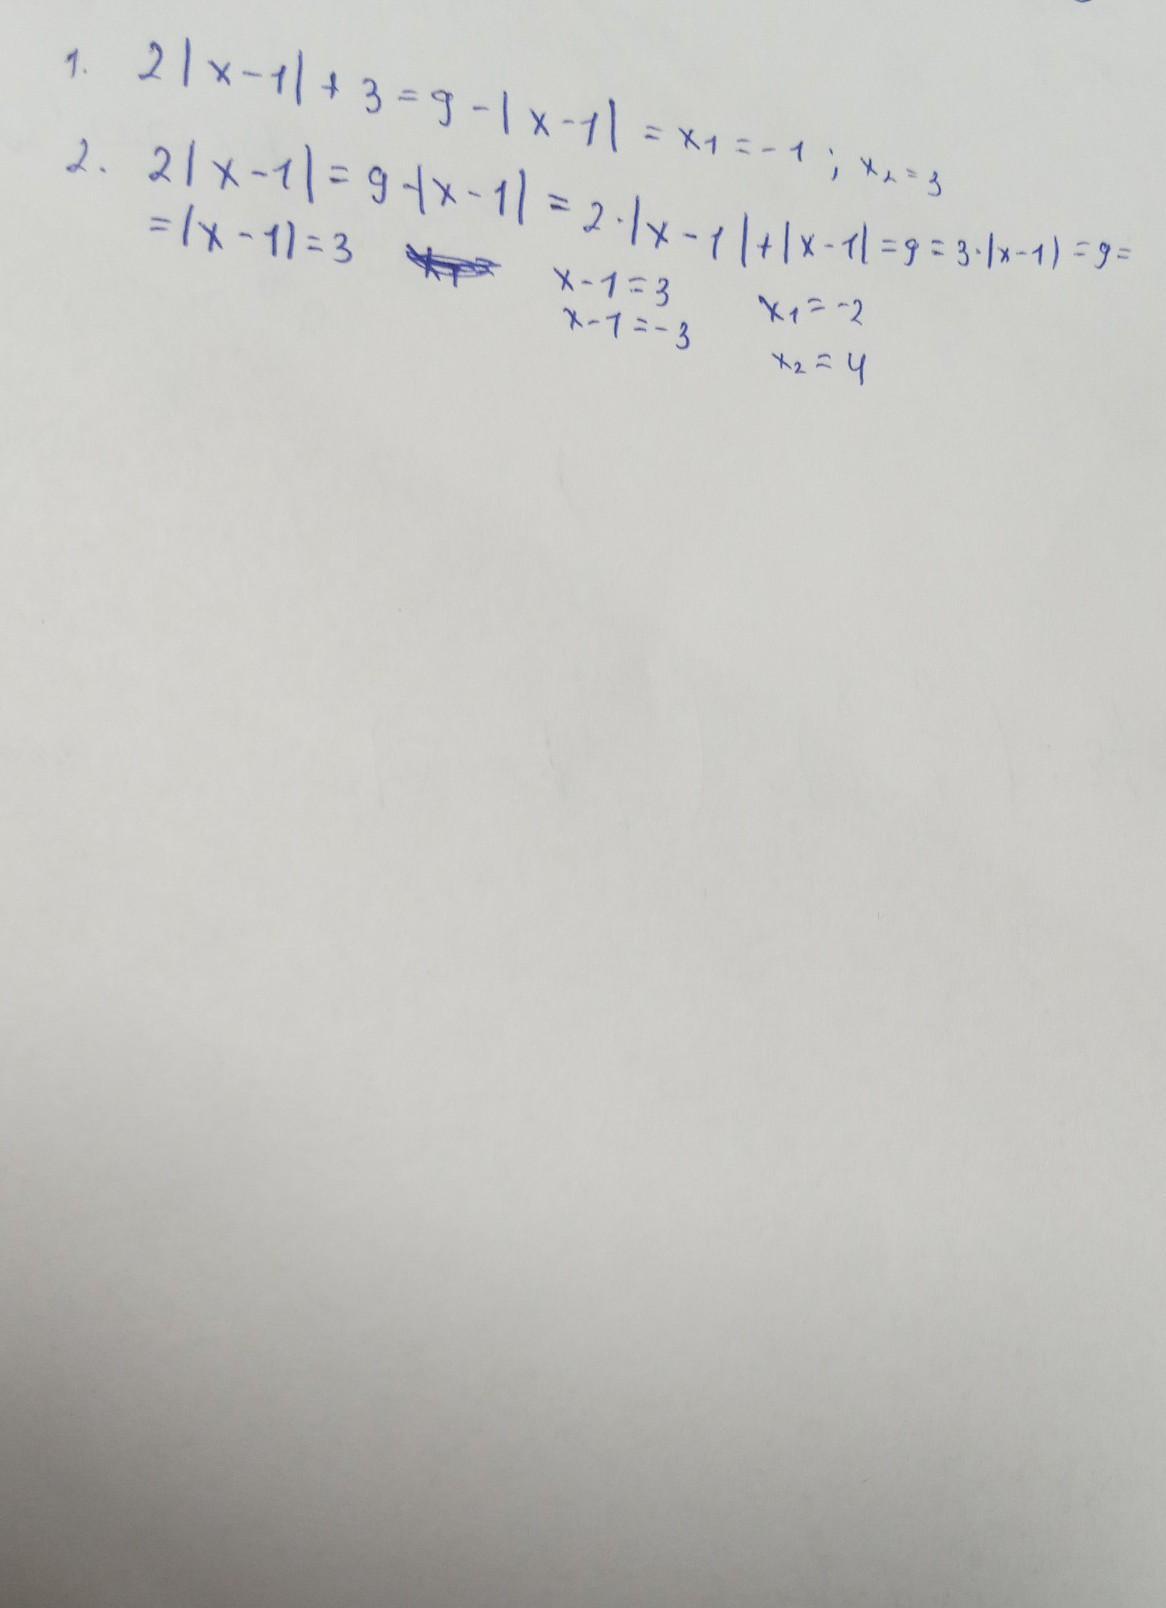 1. 2|x-1|+3=9-|x-1| = x₁=-1; x₂=3
2. 2|x-1|=9-|x-1|=2·|x-1|+|x-1|=9=3·|x-1|=9=
=|x-1|=3
x-1=3 x₁=-2
x-1=-3 x₂=4